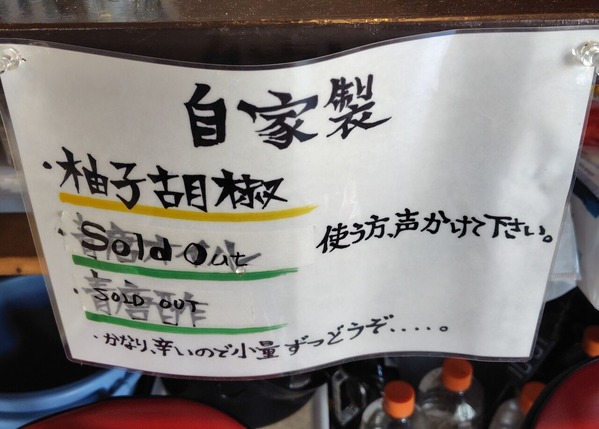 自家製
・柚子胡椒
Sold Out
使う方、声かけて下さい。
青唐酢
SOLD OUT
・かなり、辛いので小量ずつどうぞ....。